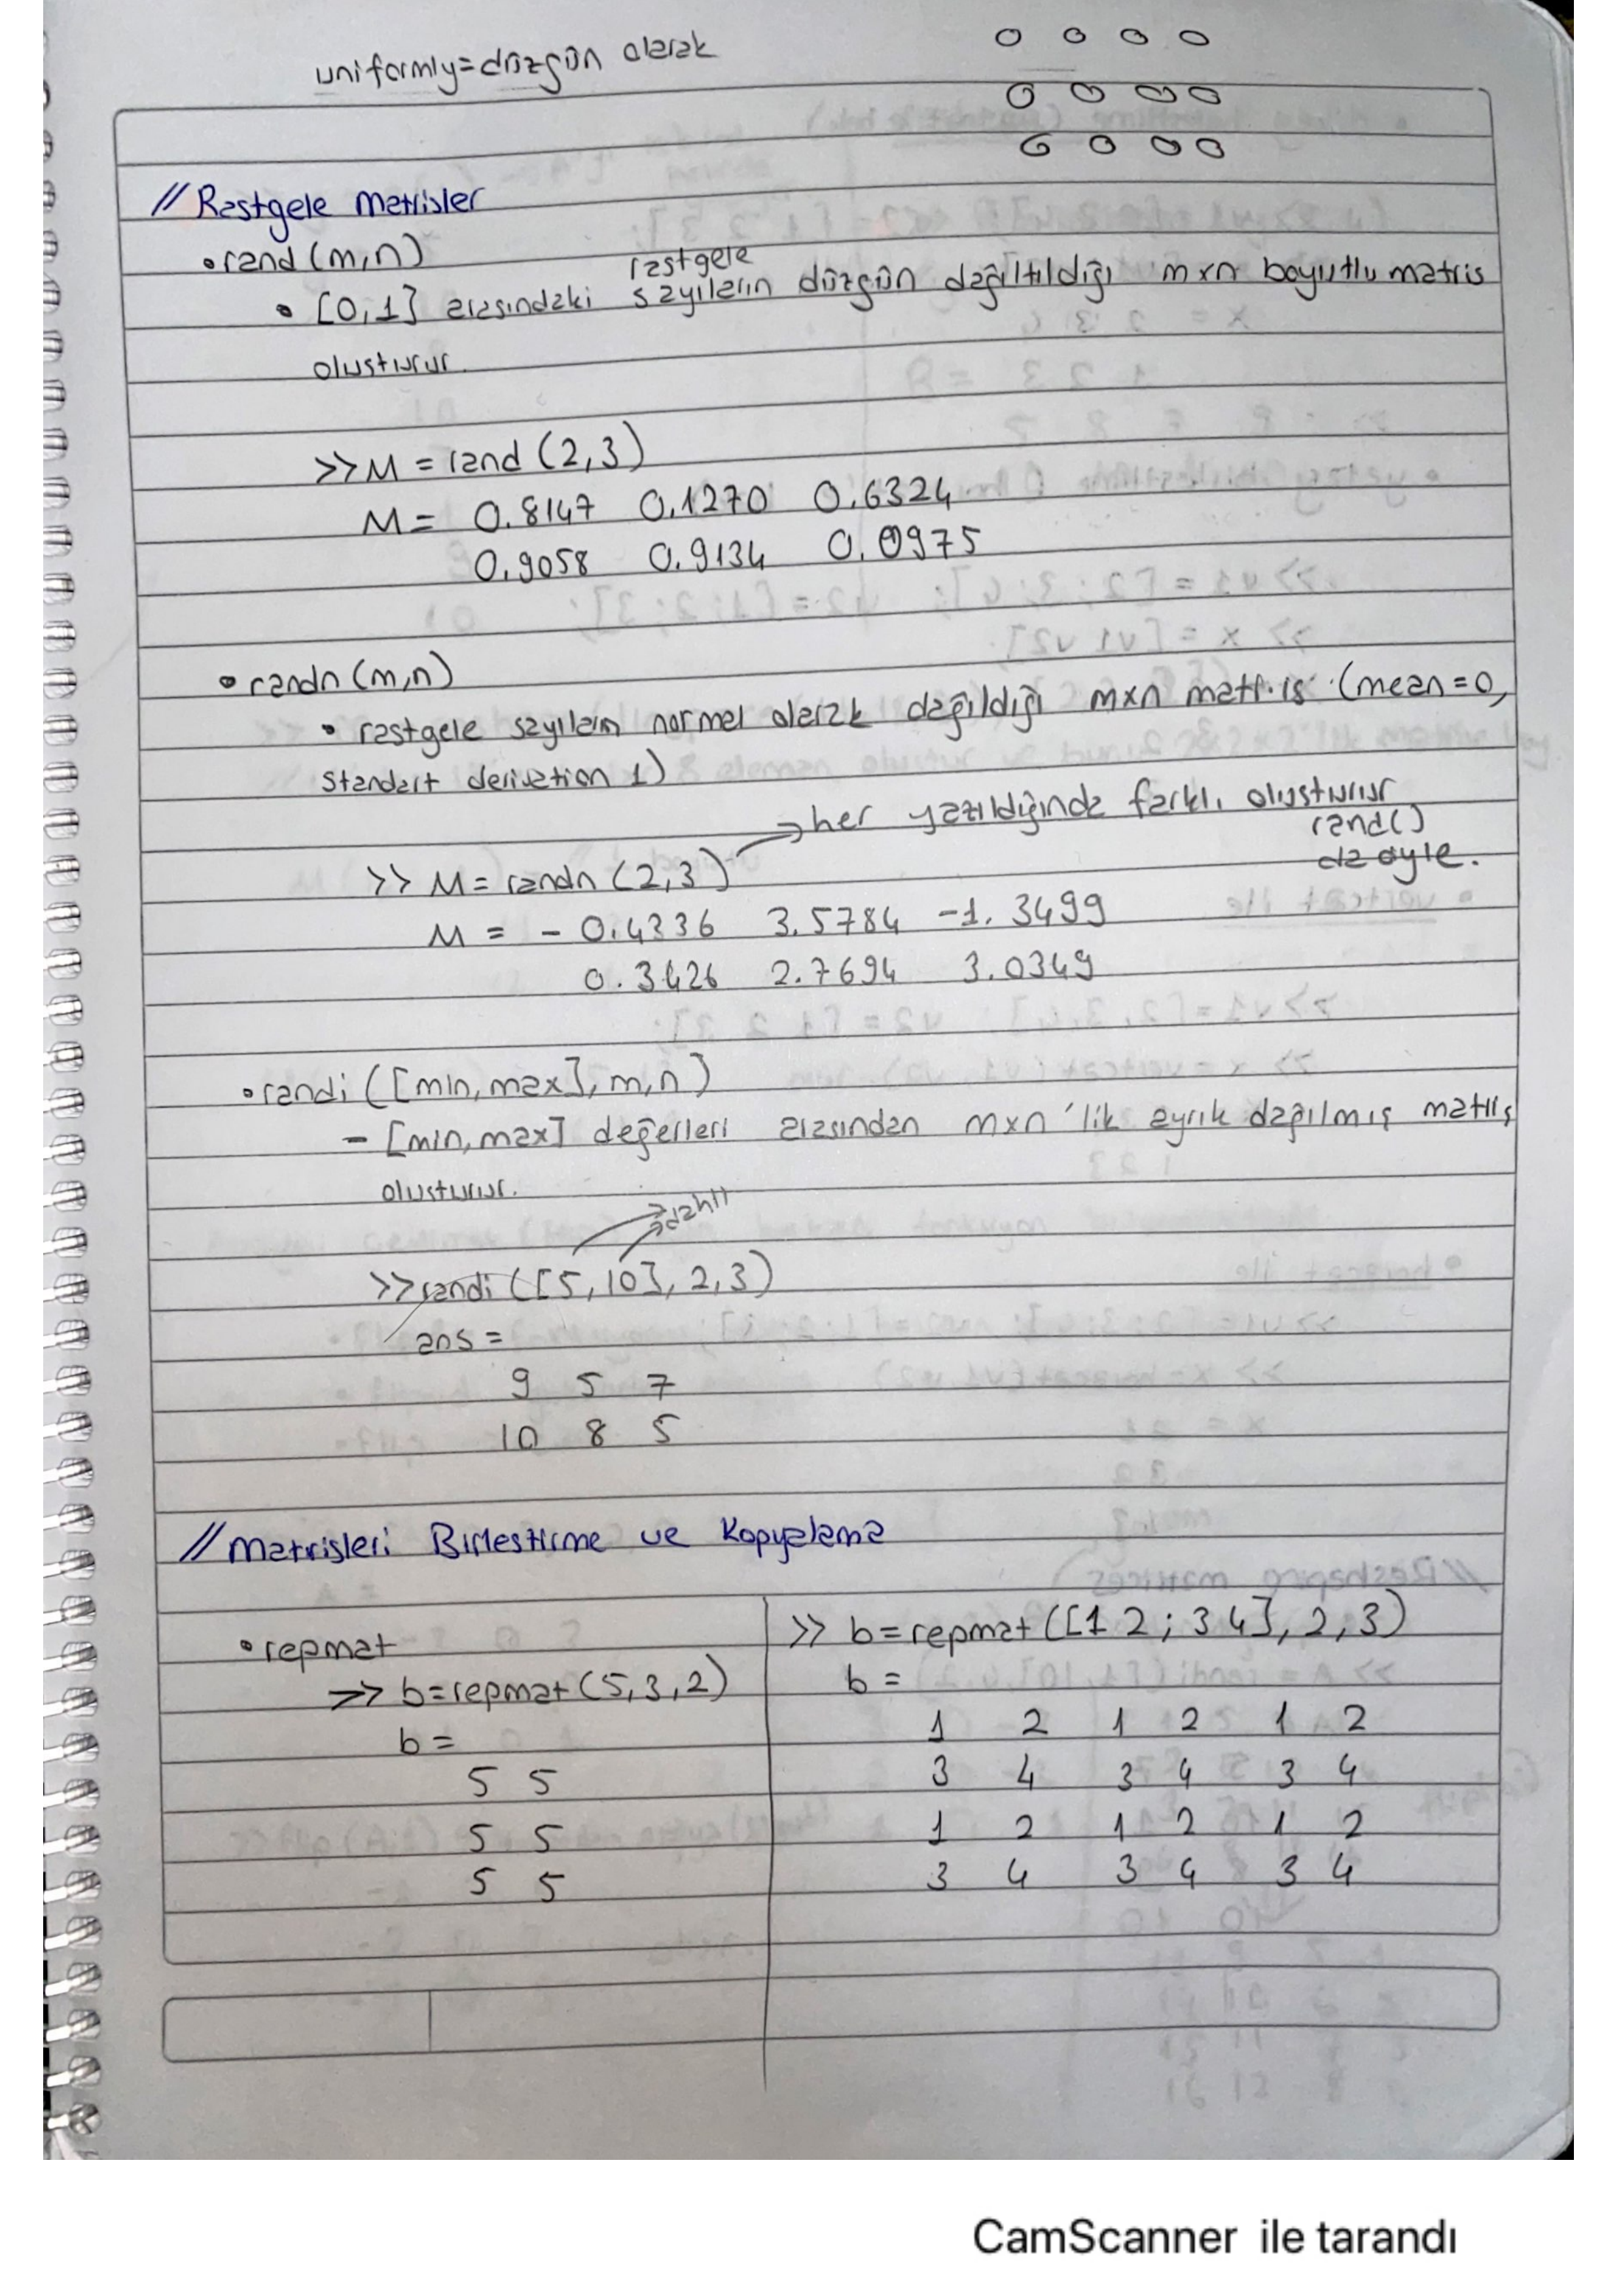 uniformly=düzgün olarak
// Rastgele Matrisler
• rand(m,n)
rastgele
• [0,1] arasındaki sayıların düzgün dağıltıldığı mxn boyutlu matris
oluşturur.
>> M = rand (2,3)
M = 0.8147 0.1270 0.6324
0.9058 0.9134 0.0975
• randn(m,n)
• rastgele sayıların normal olarak dağıldığı mxn matris (mean=0,
standart derivation 1)
→ her yazıldığında farklı oluşturur
rand()
da öyle.
>> M = randn (2,3)
M = -0.4336 3.5784 -1.3499
0.3426 2.7694 3.0349
• randi ([min,max], m,n)
- [min,max] değerleri arasından mxn'lik ayrık dağılmış matris
oluşturur.
dahil
>> randi ([5,10], 2,3)
ans =
9 5 7
10 8 5
// Matrisleri Birleştirme ve Kopyalama
• repmat
>> b=repmat(5,3,2)
b =
5 5
5 5
5 5
>> b=repmat([1 2 ; 3 4], 2,3)
b =
1 2 1 2 1 2
3 4 3 4 3 4
1 2 1 2 1 2
3 4 3 4 3 4
CamScanner ile tarandı